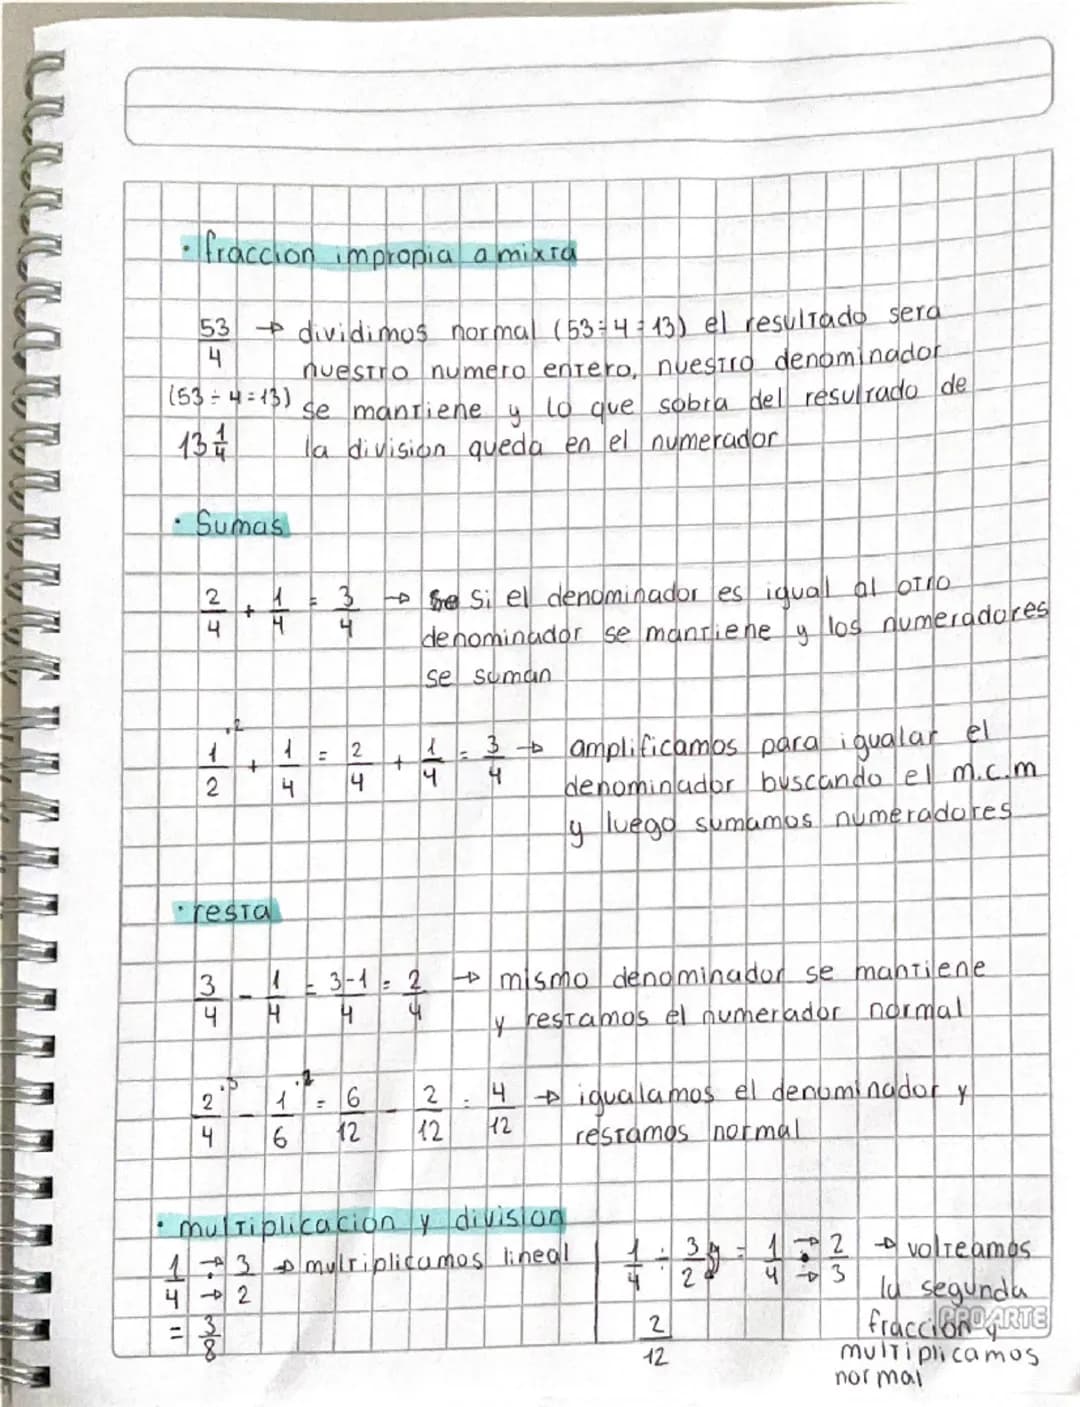 · fraccion impropia a mixta
53/4 → dividimos normal (53÷4=13) el resultado sera
nuestro numero entero, nuestro denominador
(53÷4=13) se mantiene y lo que sobra del resultado de
13 1/4 la division queda en el numerador
· Sumas
2/4 + 1/4 = 3/4 → si el denominador es igual al otro
denominador se mantiene y los numeradores
se suman
1/2 ·2 + 1/4 = 2/4 + 1/4 = 3/4 → amplificamos para igualar el
denominador buscando el m.c.m
y luego sumamos numeradores
· resta
3/4 - 1/4 = 3-1/4 = 2/4 → mismo denominador se mantiene
y restamos el numerador normal
2/4 ·3 - 1/6 ·2 = 6/12 - 2/12 = 4/12 → igualamos el denominador y
restamos normal
· multiplicacion y division
1/4 → 3/2 → multiplicamos lineal
= 3/8
1/4 ÷ 3/2 = 1/4 → 2/3 → volteamos
la segunda
fraccion y
multiplicamos
normal
2/12
PROARTE